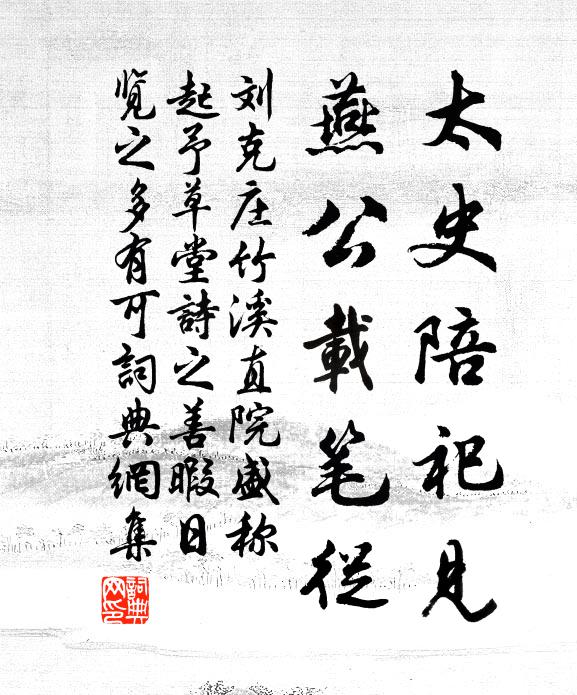 太史陪祀見
燕公載笔從
刘克庄竹溪直院盛称
起予草堂詩之善暇日
览之多有可詞典網集
詞典网印